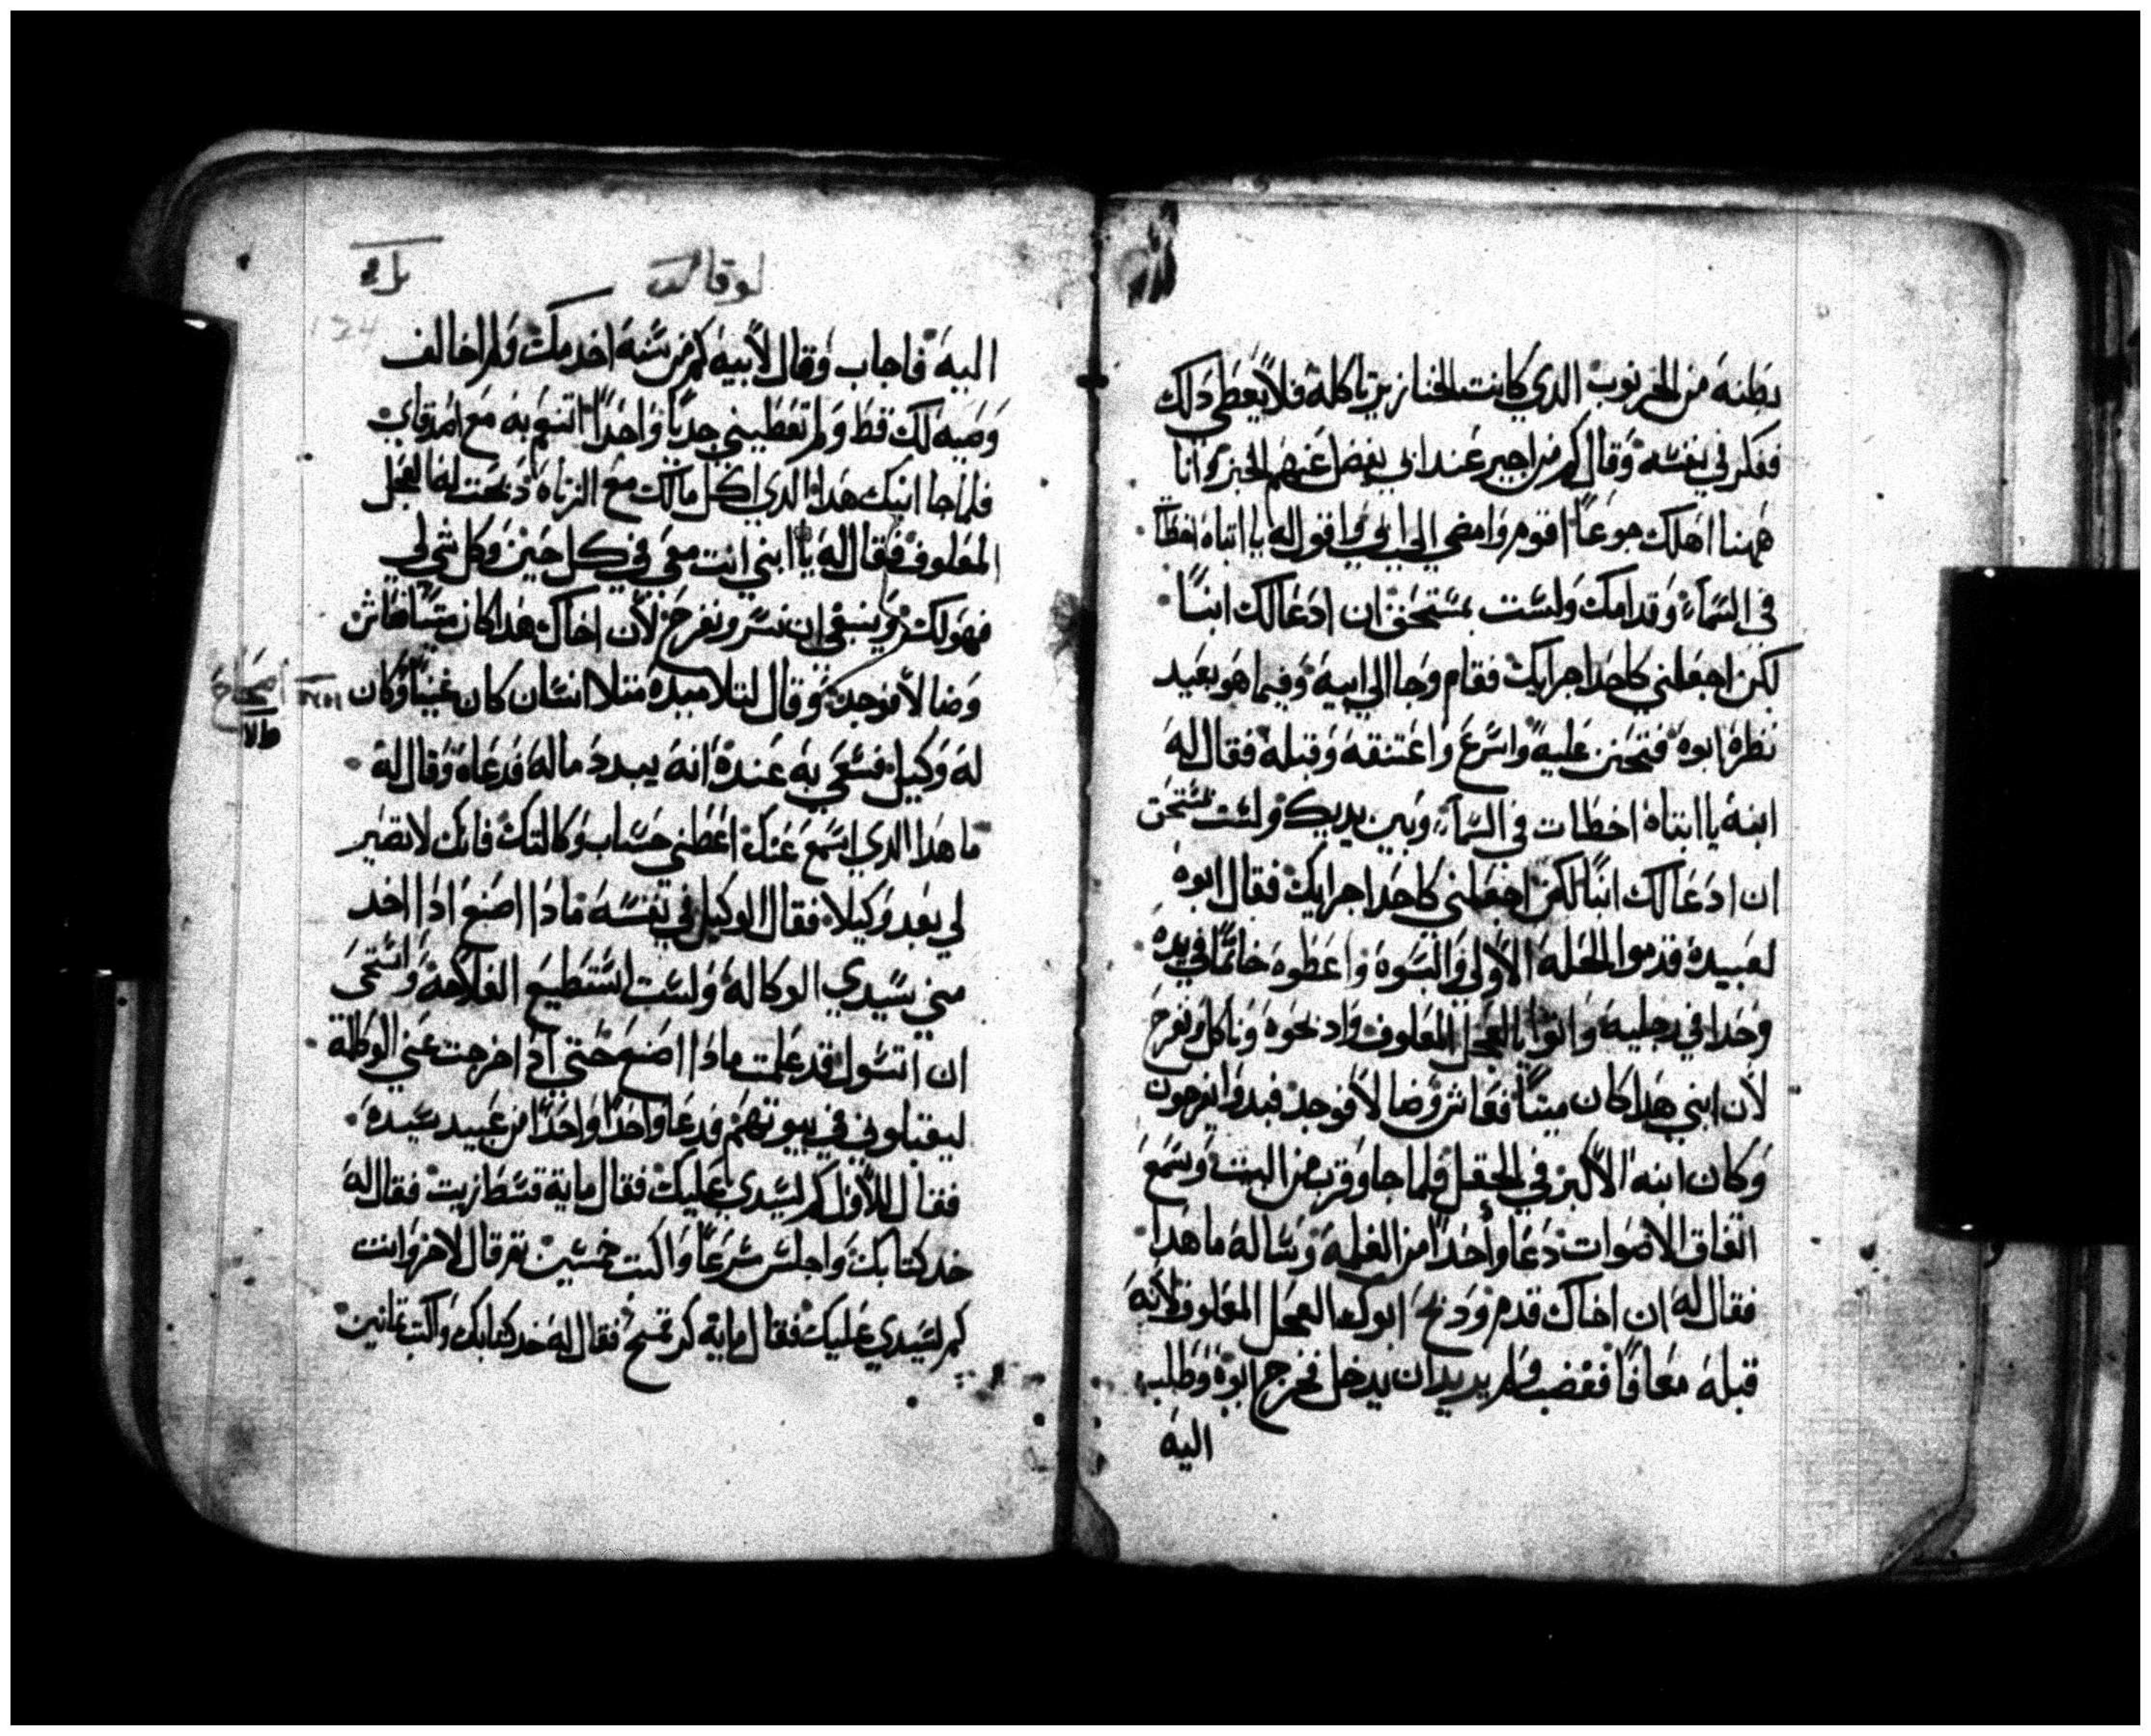 بطنه من الخرنوب الدي كانت الخنازير تاكله فلا يعطي دلك
ففكر في نفسه وقال كم من اجير عند ابي يفضل عنهم الخبز وانا
ههنا اهلك جوعا اقوم وامضي الي ابي واقول له يا ابتاه اخطات
في السماء وقدامك ولست بمستحق ان ادعا لك ابنا
لكن اجعلني كاحد اجرايك فقام وجا الي ابيه وفيما هو بعيد
نظره ابوه فتحنن عليه واسرع واعتنقه وقبله فقال له
ابنه يا ابتاه اخطات في السماء وبين يديك ولست مستحق
ان ادعا لك ابنا لكن اجعلني كاحد اجرايك فقال ابوه
لعبيده قدموا الحله الاولي والبسوه واعطوه خاتما في يده
وحدا في رجليه واتوا بالعجل المعلوف وادبحوه وناكل ونفرح
لان ابني هدا كان ميتا فعاش وضالا فوجد فبدوا يفرحون
وكان ابنه الاكبر في الحقل فلما جا وقرب من البيت وسمع
اتفاق الاصوات دعا واحدا من الغلمه وساله ما هدا
فقال له ان اخاك قدم ودبح ابوك العجل المعلوف لانه
قبله معافا فغضب ولم يريد ان يدخل فخرج ابوه وطلب
اليه
لوقا
اليه فاجاب وقال لابيه كم من سنه اخدمك ولم اخالف
وصيه لك قط ولم تعطيني جديا واحدا اتنعم به مع اصدقاي
فلما جا ابنك هدا الدي اكل مالك مع الزناه دبحت له العجل
المعلوف فقال له يا ابني انت معي في كل حين وكل شي لي
فهو لك وينبغي ان نسر ونفرح لان اخاك هدا كان ميتا فعاش
وضالا فوجد وقال لتلاميده مثلا انسان كان غنيا وكان
اصحاح
له وكيل فسعي به عنده انه يبدد ماله فدعاه وقال له
ما هدا الدي اسمع عنك اعطني حساب وكالتك فانك لا تصير
لي بعد وكيلا فقال الوكيل في نفسه مادا اصنع ادا اخد
مني سيدي الوكاله ولست استطيع الفلاحه واستحي
ان اتسول قد علمت مادا اصنع حتي اد اخرجت عني الوكاله
ليقبلوني في بيوتهم فدعا واحدا واحدا من عبيد سيده
فقال للاول كم لسيدي عليك فقال مايه قسط زيت فقال له
خد كتابك واجلس سرعا واكتب خمسين تم قال لاخر وانت
كم لسيدي عليك فقال مايه كر قمح فقال له خد كتابك واكتب تمانين